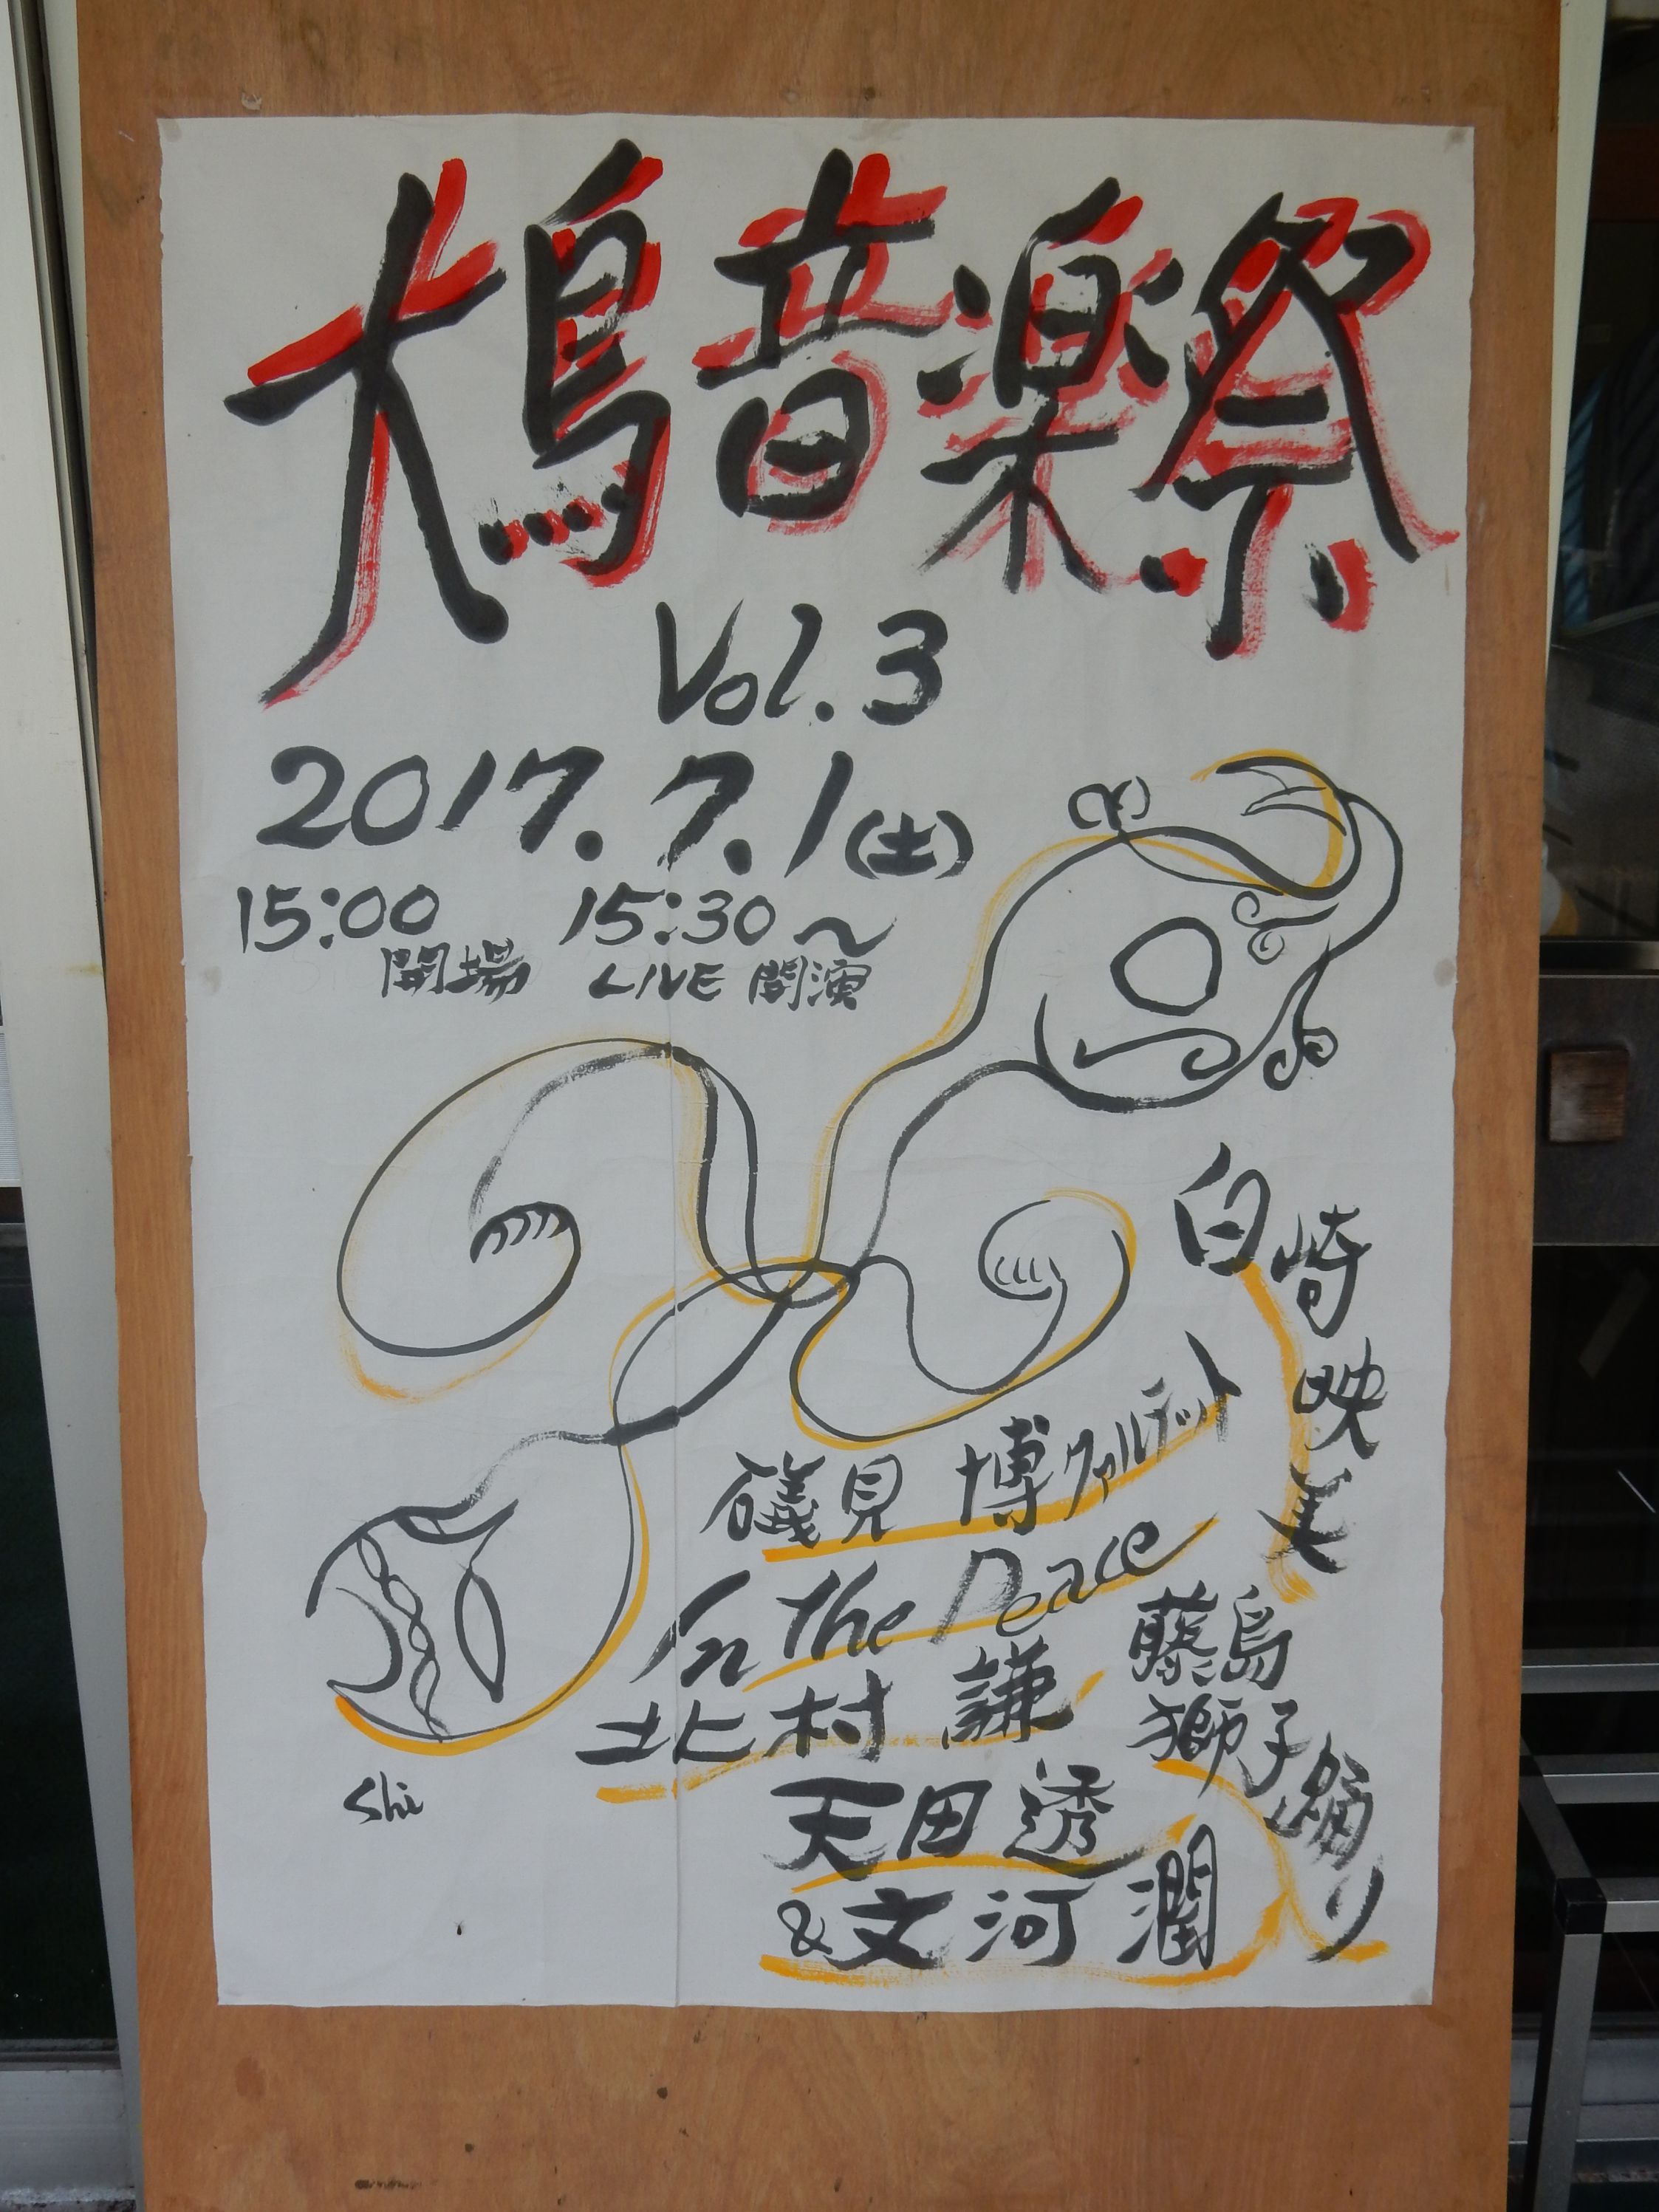 大鳥音楽祭
Vol.3
2017.7.1(土)
15:00 15:30～
開場 LIVE 開演
白崎映美
礒見博クァルテット
In the Peace
北村 謙
天田 透
&文河 潤
藤島
獅子踊り
Shi